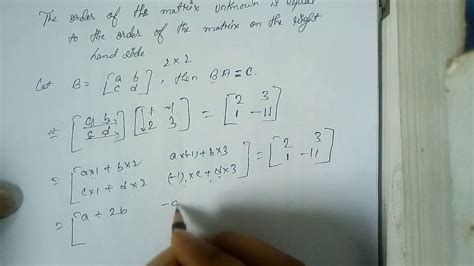 The order of the matrix unknown is equal
to the order of the matrix on the right
hand side.
2 × 2
Let B = [a b; c d], then BA = C.
= [a b; c d] [1 -1; 2 3] = [2 3; 1 -11]
= [a×1 + b×2 a×(-1) + b×3; c×1 + d×2 (-1)×c + d×3] = [2 3; 1 -11]
= [a + 2b -a